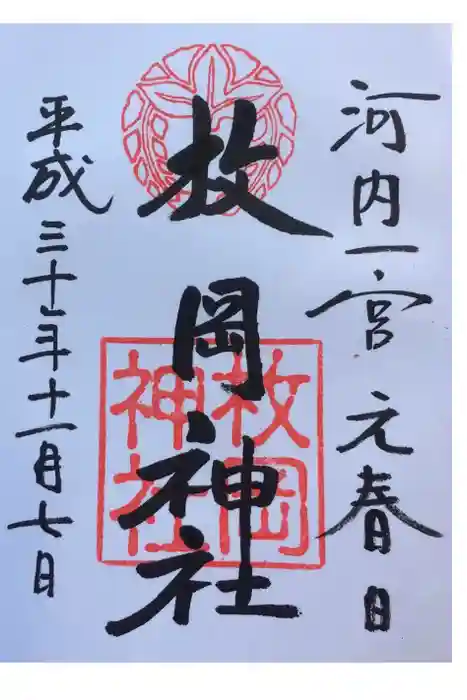 河内一宮 元春日
枚岡神社
平成三十年十一月七日
枚岡
神社